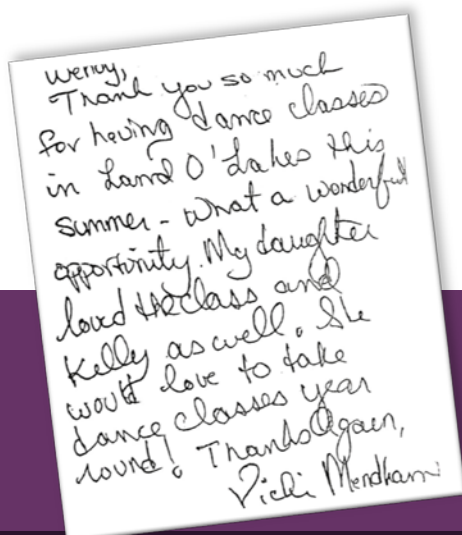 Wendy,
Thank you so much
for having dance classes
in Land O'Lakes this
summer - what a wonderful
opportunity. My daughter
loved the class and
Kelly as well. She
would love to take
dance classes year
round! Thanks Again,
Vicki Mendham